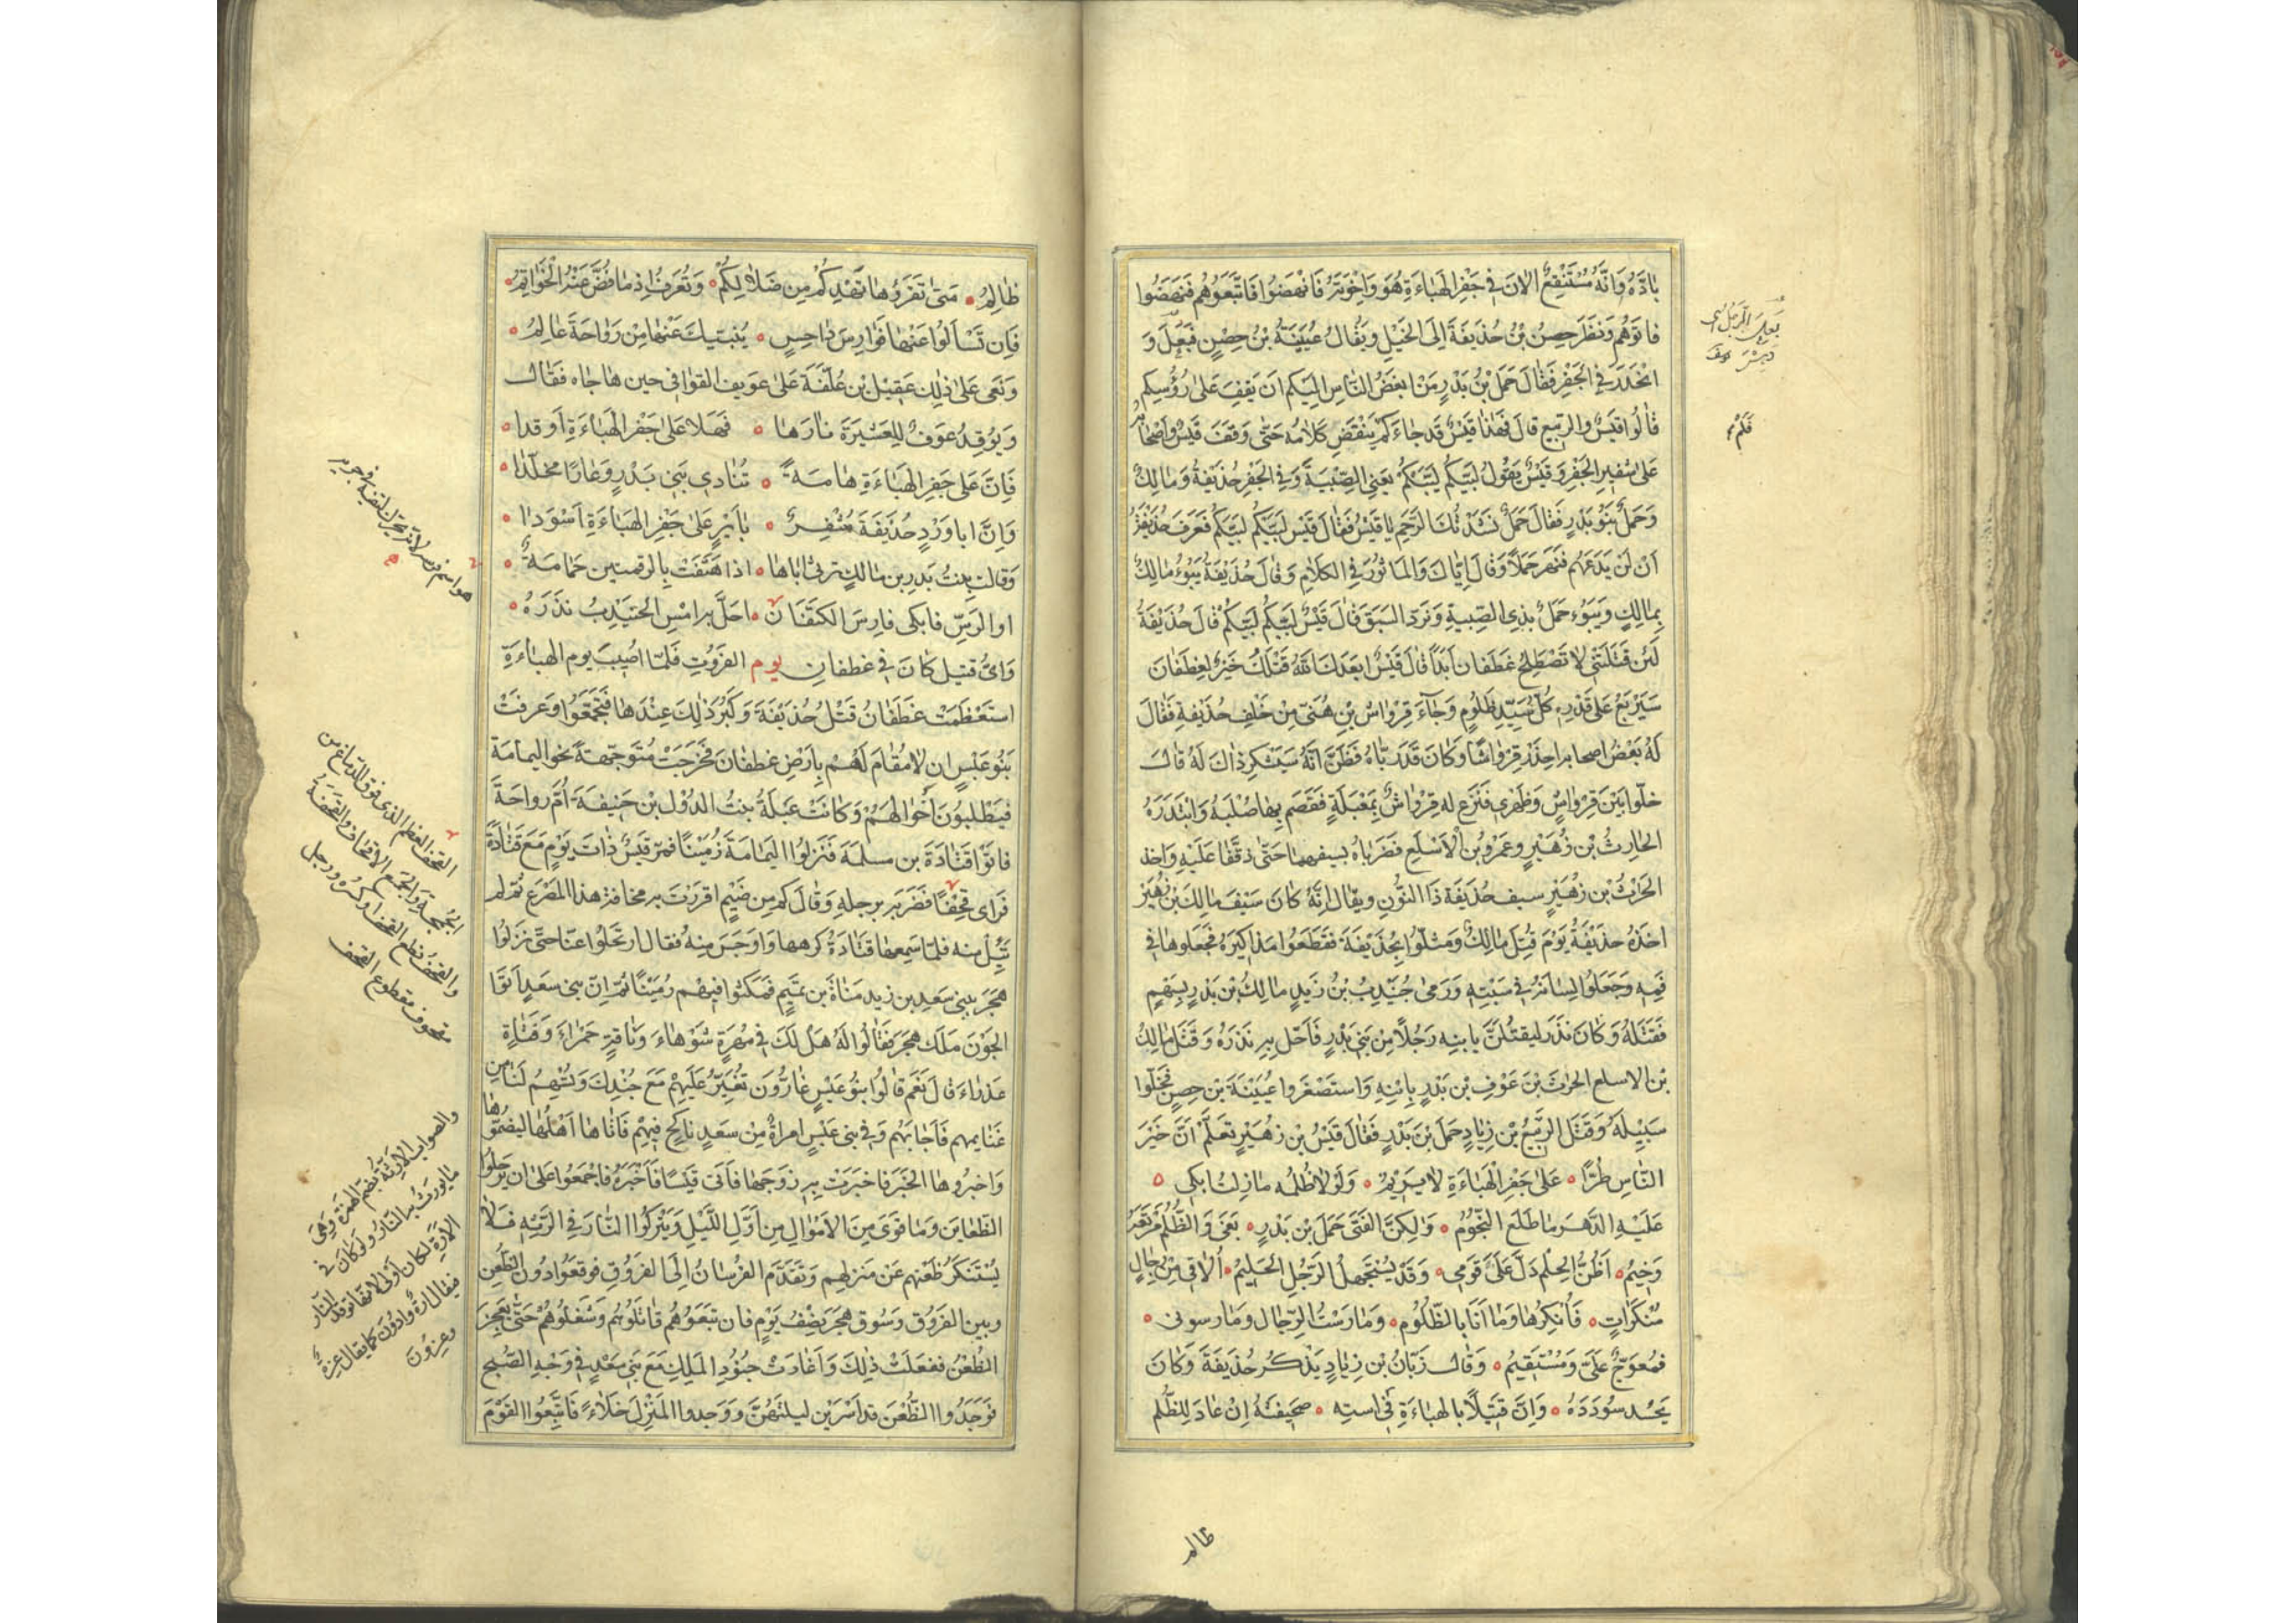 بَادَّهُ وَاَنَّهُ مُسْتَنْقِعٌ الْاٰنَ فِي جَفْرِ الْهَبَاءَةِ هُوَ وَاِخْوَتُهُ فَانْهَضُوا فَاتَّبِعُوهُمْ فَنَهَضُوا
فاتوهم وَنَظَرَ حِصْنُ بْنُ حُذَيفَةَ اِلَى الخَيْلِ وَيُقَالُ عُيَيْنَةُ بْنُ حِصْنٍ فَبَعِلَ وَ
انْحَدَرَ فِي الجَفْرِ فَقَالَ حَمَلُ بْنُ بَدْرٍ مَنْ ابغَضُ النَّاسِ اِلَيكم اَنْ يَقِفَ عَلٰى رُؤُسِكم
قَالُوا قَيْسٌ والربيع قالَ فَهٰذَا قَيْسٌ قَد جَاءَكم يَنْقَضِ كَلَامُهُ حَتّٰى وَقَفَ قَيْسٌ وَاَصْحَابُهُ
عَلٰى شفيرِ الجَفْرِ وَقَيْسٌ يَقُولُ لَبَّيْكُم لَبَّيْكُمْ يَعْنِي الصِّبْيَةَ وَفِي الجَفْرِ حُذَيْفَةُ وَمَالِكٌ
وَحَمَلٌ بَنُو بَدْرٍ فَقَالَ حَمَلٌ نَشَدْتُكَ الرَّحِمَ يَا قَيْسُ فَقَالَ قَيْس لَبَّيْكُم لَبَّيْكُم فَعَرَفَ حُذَيفَةُ
اَنْ لَنْ يَدَعَهُم فَنَهَرَ حَمَلًا وَقَالَ اِيَّاكَ وَالمَاثُورَ فِي الكَلَامِ وَقَالَ حُذَيفَةُ يَبُوءُ مَالِكٌ
بِمَالِكٍ وَيَبُوءُ حَمَلٌ بِذِي الصِّبيةِ وَنَرُدّ السَّبَقَ قَالَ قَيْسٌ لَبَّيْكُم لَبَّيْكُم قَالَ حُذَيفَةُ
لَئِن قَتَلتَنِي لَا تَصْطَلِحُ غَطَفَان اَبَدًا قَالَ قَيْسٌ ابعَدَكَ اللّٰهُ قَتْلُكَ خَيْرٌ لِغَطَفَانَ
سَيَرْبَعُ عَلٰى قَدْرِهِ كُلُّ سَيِّدٍ ظَلُومٍ وَجَاءَ قِرْوَاشُ بْنِ هُنَيّ مِنْ خَلْفِ حُذَيفَةَ فَقَالَ
لَهُ بَعْضُ اصحابه احذَرْ قِرْوَاشًا وَكَانَ قَدْ رَبَّاهُ فَظَنَّ اَنَّهُ سَيَشْكر ذٰلكَ لَهُ قَالَ
خلّوا بَيْنَ قِرْوَاشٍ وَظَهْرِي فَنَزَعَ لَهُ قِرْوَاشٌ بِمِعْبَلَةٍ فَقَصَمَ بِهَا صُلْبَهُ وَابْتَدَرَهُ
الحَارِثُ بْن زُهَيْرٍ وعَمْرُو بْنُ الْاَسْلَعِ فَضَرَبَاهُ بسيفيهما حَتّٰى ذفّفَا عَلَيْهِ واخذ
الحَرْثُ بْن زُهَيْرٍ سيف حُذَيفَةَ ذَا النُّونِ ويقَالُ اِنَّهُ كَانَ سَيْفَ مَالِكِ بْن زُهَيْرٍ
اخذهُ حذيفَةُ يَوْمَ قُتِلَ مَالِكٌ وَمَثَلُوا بِحُذَيْفَةَ فَقَطَعُوا مَذَاكِيرَهُ فَجَعَلوهَا في
فِيهِ وَجَعَلُوا لِسَانَهُ فِي سَبَّتِهِ وَرَمٰى جُنَيْدِبُ بْنُ زَيدٍ مَالِكَ بْن بَدْرٍ بِسَهْمٍ
فَقَتَلَهُ وَكَانَ نذَرَ ليقتُلَنَّ بابنِه رَجُلًا مِنْ بَنِي بَدْرٍ فَاَحَلّ بِهِ نَذْرَهُ وَقَتَلَ مَالِكُ
بن الاسلع الحَرثَ بْنَ عَوْفِ بْن بَدْرٍ بِابْنِهِ وَاسْتَصْغَروا عُيَيْنَةَ بن حِصنٍ فَخَلّوا
سَبِيلَهُ وَقَتَلَ الرَّبِيعُ بْن زِيَادٍ حَمَلَ بْنَ بَدْرٍ فَقَالَ قَيْسُ بْن زُهَيْرٍ تَعَلَّمْ اَنَّ خَيْرَ
النَّاسِ طُرًّا ه عَلٰى جَفْرِ الْهَبَاءَةِ لا يَرِيْمُ ه وَلَوْلَا ظُلْمُه مَا زِلتُ ابكي ه
عَلَيْهِ الدَّهْرَ مَا طَلَعَ النُّجُومُ ه وَلكِنَّ الفَتَى حَمَلَ بْنَ بَدْرٍ ه بَغٰى وَالظُّلْمُ مَرْتَعُهُ
وَخِيمُ ه اَظُنُّ الحِلْمَ دَلَّ عَلَيَّ قَوْمِي ه وَقَدْ يُسْتَجْهَلُ الرَّجُلُ الحَلِيمُ ه اُلَاقِي مِنْ رِجَالٍ
مُنْكَرَاتٍ ه فَاُنْكِرُهَا وَمَا اَنَا بِالظَّلُومِ ه وَمَارَسْتُ الرِّجَال وَمَارسونى ه
فمُعوَجٌّ عَلَيَّ وَمُسْتَقِيمُ ه وَقَالَ زَبّانُ بْن زِيَادٍ يَذْكُر حُذَيفَةَ وَكَانَ
يَحْسُد سُودَدَهُ ه وَاِنَّ قَتِيْلًا بالهبَاءَةِ فِي استِه ه صَحِيفَتُهُ اِنْ عَادَ لِلظُّلْم
بَعِلَ الرَّجُلُ اى
دَهِشَ
فَلَمْ
ظالم
ظَالِمُ ه مَتٰى تَقرَؤُهَا تَهْدِكُمْ مِن ضَلَالِكُمْ ه وَتُعْرَفُ اِذ مَا فُضَّ عَنْهُ الْخَوَاتِمُ ه
فَاِن تَسْاَلُوا عَنْهَا فَوَارِسَ دَاحِسٍ ه يُنبئيك عَنْهَا مِنْ رَوَاحَةَ عَالِمُ ه
وَنَعَى عَلٰى ذٰلِك عَقِيْل بْن عُلّفَةَ عَلٰى عَوِيف القوافي حين هَاجَاه فَقَالَ
وَيُوقِدُ عَوفٌ للعَشيرَةِ نَارَهَا ه فَهَلّا عَلٰى جَفْرِ الهَبَاءَةِ اَوقدا ه
فَاِنَّ عَلٰى جَفْرِ الهَبَاءَةِ هَامَةً ه تُنَادِي بَنِي بَدْرٍ وَعَارًا مخلّدا ه
وَاِنَّ ابا وَرْدٍ حُذَيفَةَ مُثْفِرٌ ه بِاَيْرٍ عَلٰى جَفْرِ الهَبَاءَةِ اَسْوَدا ه
وَقالت بنتُ بَدرِ بن مَالكٍ ترثى اباها ه اذا هَتَفَتْ بِالرقمتين حَمَامَةٌ ه
او الرَسِّ فابكى فارِسَ الكَتَفَان ه احَلَّ به امْسِ الجنَيْدِبُ نذَرَهُ ه
وَاىُّ قتيل كَانَ فى غطفانِ يوم الفَرُوقِ فَلَمّا اصُيبَ يوم الهبَاءَةِ
استَعْظَمَتْ غَطَفَانُ قَتْلَ حُذَيْفَةَ وَكَبُرَ ذٰلِكَ عِنْدَهَا فَتَجَمَّعُوا وَعَرفَتْ
بَنُو عَبْسٍ ان لا مُقَامَ لَهُم بِاَرْضِ غطفَانَ فَخَرَجَتْ مُتَوَجِّهةً نَحو اليَمَامَة
فَيَطْلُبُونَ اَخْوَالَهُمْ وَكَانَتْ عَبْلَةُ بنتُ الدُوْل بْن حَنِيفَةَ اُمّ رواحَةَ
فَاتَوْا قَتَادَةَ بن مسلمَةَ فَنَزلوا اليَمَامَةَ زُمَيْنًا فمرّ قَيْسٌ ذَاتَ يَوْمٍ مَعَ قَتَادَةَ
فَرَاى قِحْفًا فَضَرَبَهُ برجلِهِ وَقَالَ كم مِن ضَيْمٍ اقررتَ به مخافَةَ هذا المَصْرَعِ ثمّ لم
تَئِلْ منه فلمّا سَمِعهَا قَتَادَةُ كرهها وَاوْجَسَ مِنهُ فقال ارتَحِلُوا عَنّا حتّى نَزَلُوا
هَجَرَ ببَنِي سَعدِ بن زيد مَنَاةَ بن تميمٍ فَمَكَثوا فيهم زُمَيْنًا ثمّ اِنّ بنى سَعدٍ اَتَوا
الجَوْنَ مَلِكَ هَجَرَ فَقَالُوا لَهُ هَلْ لَكَ فِي مُهْرَةٍ شَوْهَاءَ وَنَاقَةٍ حَمْرَاءَ وَفَتَاةٍ
عَذرَاءَ قَالَ نَعَم قَالُوا بَنُو عَبْسٍ غَارُّونَ تُغِيْرُ عَلَيهِمْ مَعَ جُنْدِكَ وَتُسْهِمُ لَنَا مِن
غَنَايمهم فَاَجَابَهُم وَفي بنى عَبْسٍ امراةٌ مِنْ سَعدٍ نَاكِحٌ فِيْهِمْ فَاتَاهَا اَهْلُهَا ليضُمُّوهَا
وَاخبرُوهَا الخَبَرَ فَاخبَرَتْ بِهِ زَوجَهَا فَاَتى قَيْسًا فَاَخْبَرَهُ فَاجْمَعُوا عَلٰى ان يُرَحِّلوا
الظّعَاين وَمَا قَوِىَ مِنَ الاَمْوَالِ مِن اَوّلِ اللّيْلِ وَيَتْركُوا النَّارَ فِي الرِّثّةِ فَلَا
يُسْتَنكَرُ ظَعْنُهم عَن مَنزلهم وَتَقَدَّم الفُرسَانُ اِلَى الفَرُوقِ فوقَعُوا دُونَ الظُّعنِ
وبين الفَرُوق وَسُوقِ هَجَرَ نِصْفُ يَوْمٍ فان تبعُوهُم قَاتَلُوهُم وَشغَلُوهُمْ حَتّٰى تعجز
الظُّعْنُ ففعَلَتْ ذٰلِكَ وَاَغَارَتْ جنُودُ المَلِكِ مَعَ بَنِي سَعْدٍ فِي وَجْهِ الصُّبح
فَوَجَدُوا الظُّعْنَ قد اَسْرَيْن ليلَتَهُنَّ وَوَجدوا المَنْزِلَ خَلَاءً فَاتَّبعُوا القَوْمَ
هو اسم فرس
القحف العظم الذى فوق الدّماغ من
الجُمجمة والجَمع الاقحاف والقحفَةُ
والقحْفُ قطع القحف او كسرُه ورجل
مقحوف مقطوع القحف
والصواب الارثة بضم الهمزة وهى
ما يورَثُ به النّار ولو كانَ فى
الارَةِ لكان اولى لانها موقد النّار
فيقال ارة وارُون كما يقال عزة
وعزون